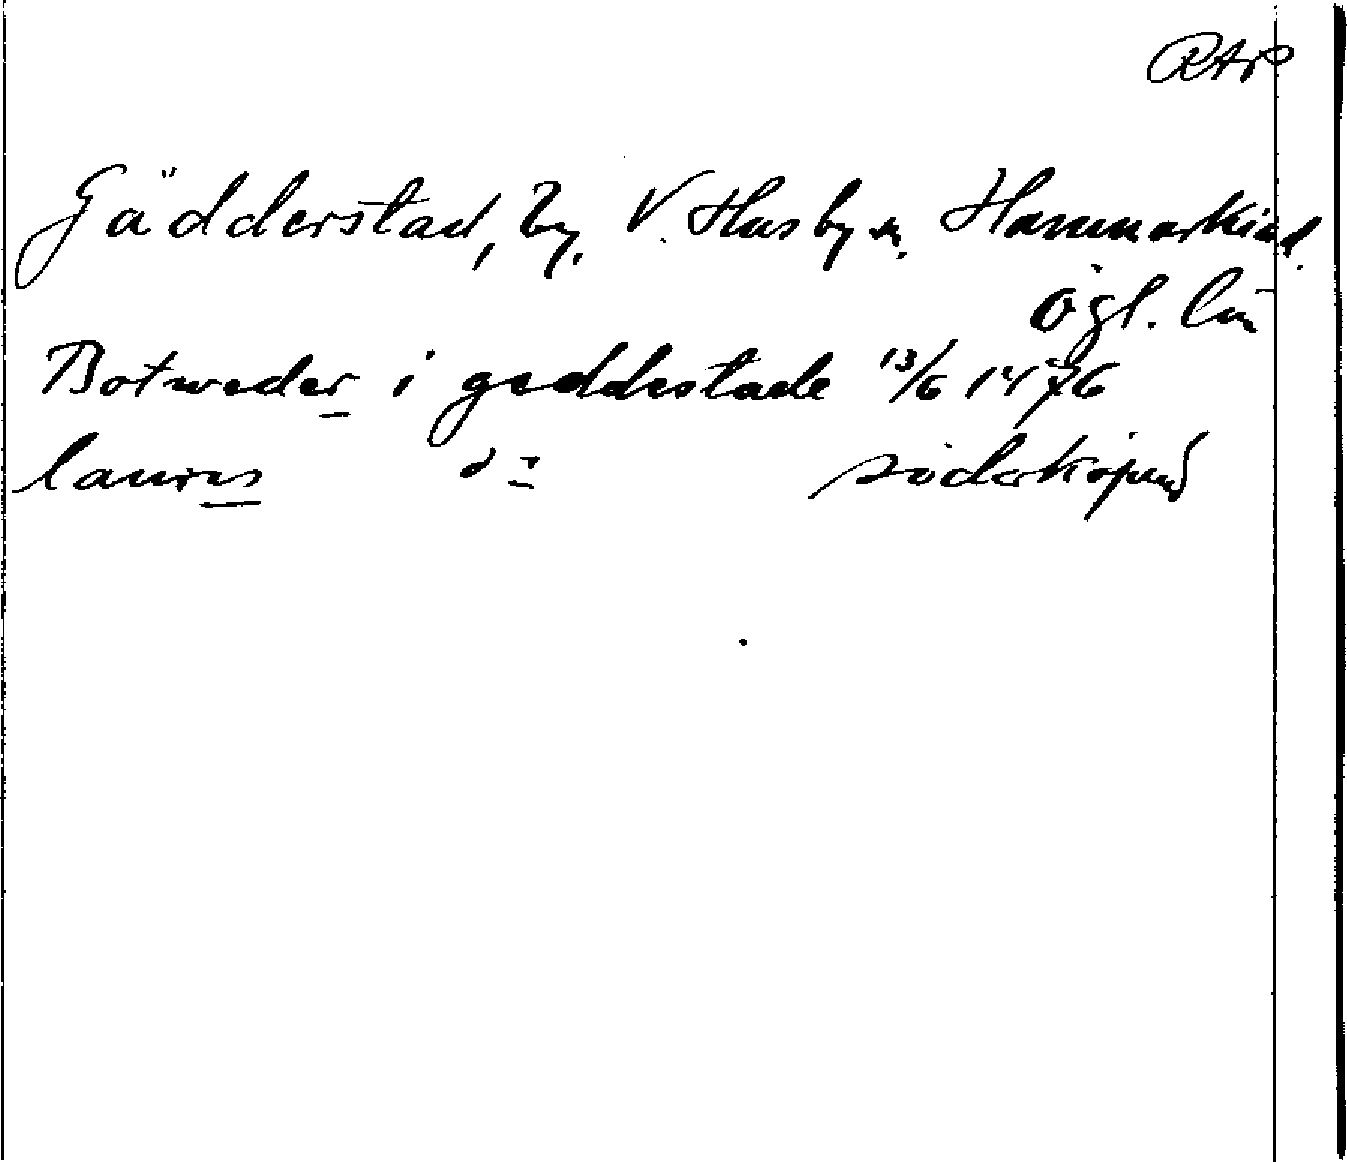 RAP
Gädderstad, by, V. Husby sn, Hammarkind
Ögl. län
Botweder i geddestade 13/6 1476
laurᵉs dᵒ söderköping